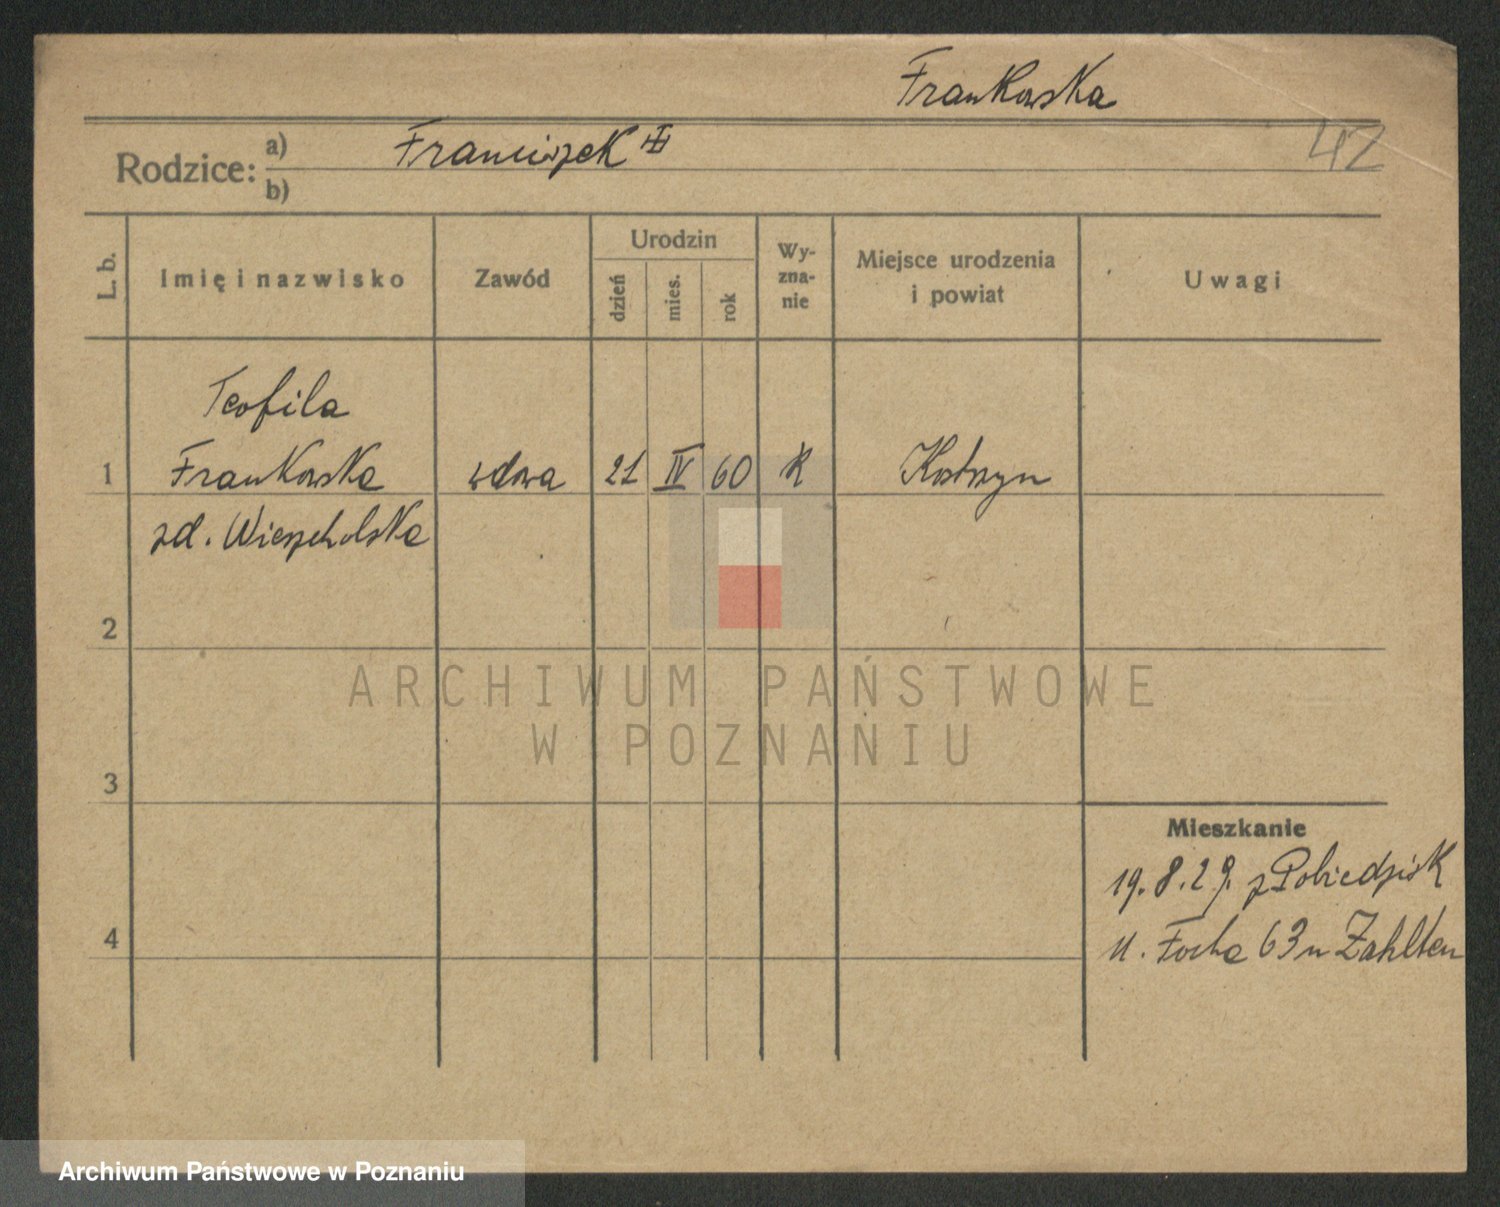 Frankowska
42
Rodzice: a) Franciszek
b)
L. b. Imię i nazwisko Zawód Urodzin dzień mies. rok Wy-zna-nie Miejsce urodzenia i powiat Uwagi
Teofila
1 Frankowska wdowa 21 IV 60 K Kostrzyn
zd. Wierzcholska
2
ARCHIWUM PAŃSTWOWE
W POZNANIU
3
Mieszkanie
19.8.29. z Pobiedzisk
4 u. Focha 63 u
Archiwum Państwowe w Poznaniu